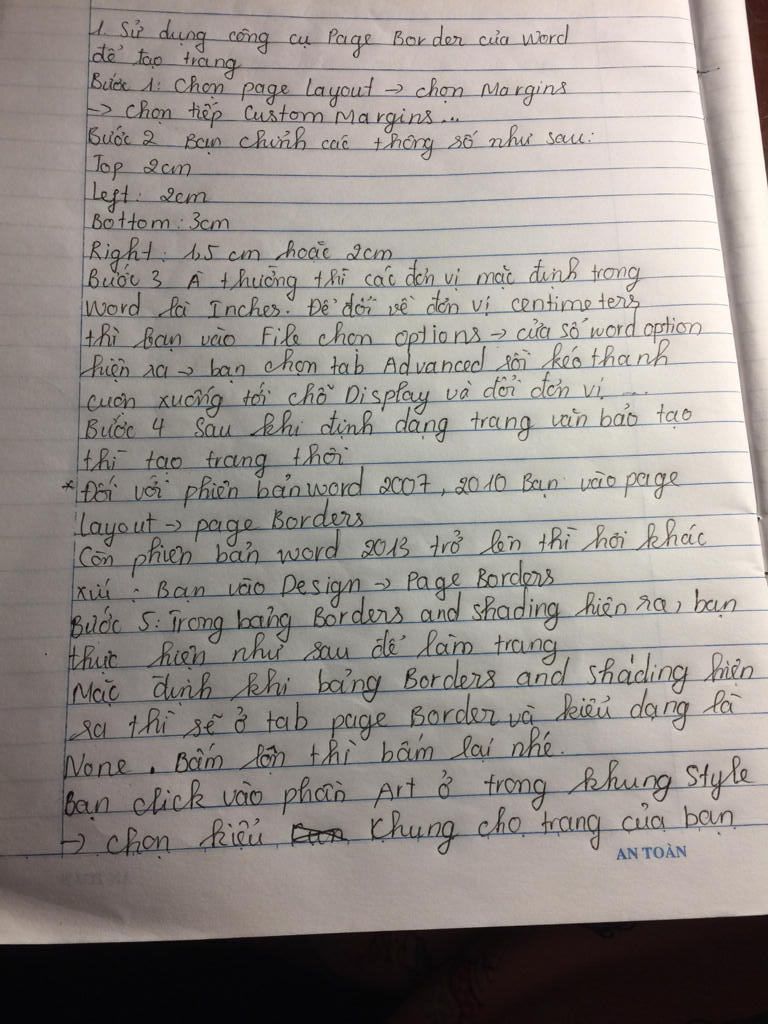 1. Sử dụng công cụ Page Border của Word
để tạo trang
Bước 1: Chọn page layout → chọn Margins
→ chọn tiếp Custom Margins...
Bước 2 Bạn chỉnh các thông số như sau:
Top 2cm
Left: 2cm
Bottom: 3cm
Right: 1,5 cm hoặc 2cm
Bước 3 À thường thì các đơn vị mặc định trong
Word là Inches. Để đổi về đơn vị centimeters
thì Bạn vào File chọn options → cửa sổ word option
hiện ra → bạn chọn tab Advanced rồi kéo thanh
cuộn xuống tới chỗ Display và đổi đơn vị ...
Bước 4 Sau khi định dạng trang văn bảo tạo
thì tạo trang thôi
* Đối với phiên bản word 2007, 2010 Bạn vào page
layout → page Borders
Còn phiên bản word 2013 trở lên thì hơi khác
xúi: Bạn vào Design → Page Borders
Bước 5: Trong bảng Borders and shading hiện ra, bạn
thực hiện như sau để làm trang
Mặc định khi bảng Borders and shading hiện
ra thì sẽ ở tab page Border và kiểu dạng là
None. Bấm lộn thì bấm lại nhé.
Bạn click vào phần Art ở trong khung Style
→ chọn kiểu Khung cho trang của bạn
AN TOÀN